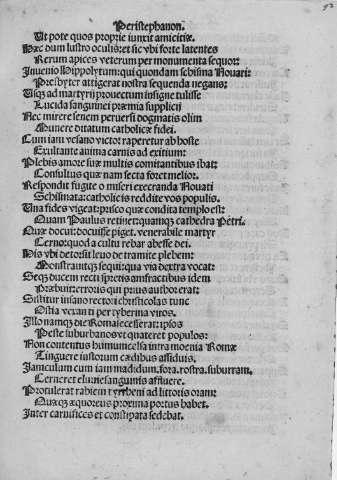 Peristephanon.
Ut pote quos proprie iunxit amicitiæ.
Hæc dum lustro oculis: et sic ubi forte latentes
Rerum apices veterum per monumenta sequor:
Invenio Hippolytum: qui quondam schisma Nouati:
Presbyter attigerat nostra sequenda negans:
Usqz ad martyrii prouectum insigne tulisse
Lucida sanguinei præmia supplicij
Nec mirere senem peruersi dogmatis olim
Munere ditatum catholicæ fidei.
Cum iam vesano victor raperetur ab hoste
Exultante anima carnis ad exitium:
Plebis amore suæ multis comitantibus ibat:
Consultus quæ nam secta foret melior.
Respondit fugite o miseri execranda Nouati
Schismata: catholicis reddite vos populis.
Una fides vigeat: prisco quæ condita templo est:
Quam Paulus retinet: quamqz cathedra Petri.
Quæ docui: docuisse piget. venerabile martyr
Cerno: quod a cultu rebar abesse dei.
His ubi detorsit leuo de tramite plebem:
Monstrauitqz sequi: qua via dextra vocat:
Seqz ducem recti spretis amfractibus idem
Præbuit: erroris qui prius author erat:
Sistitur insano rectori christicolas tunc
Ostia vexanti per tyberina viros.
Illo namqz die Roma iecesserat: ipsos
Peste suburbanos ut quateret populos:
Non contentus humum celsa intra moenia Romæ
Tinguere iustorum cædibus assiduis.
Janiculum cum iam madidum. fora. rostra. suburram.
Cerneret eluuie sanguinis affluere.
Protulerat rabiem tyrrheni ad littoris oram:
Quæqz æquoreus proxima portus habet.
Inter carnifices et constipata sedebat.